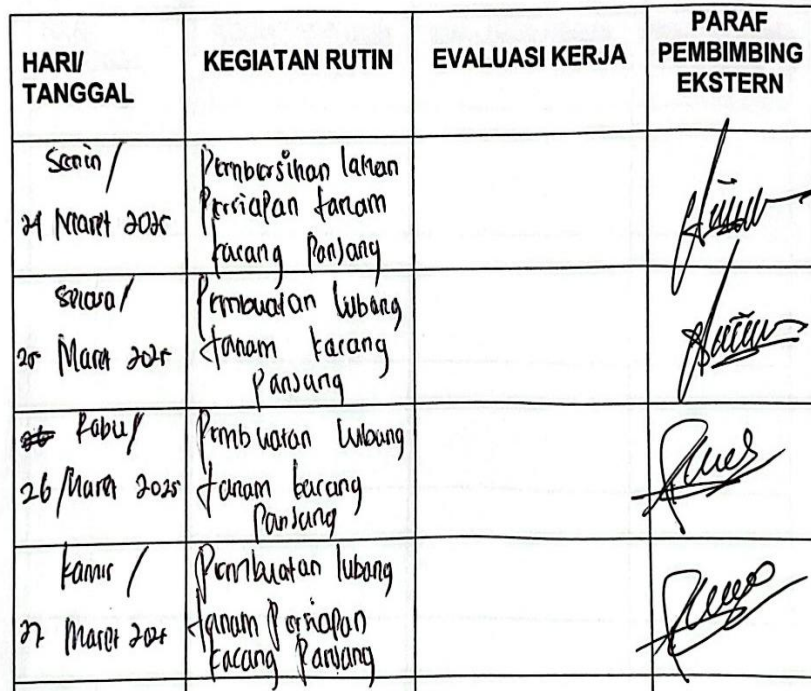 HARI/
TANGGAL
KEGIATAN RUTIN
EVALUASI KERJA
PARAF
PEMBIMBING
EKSTERN
Senin /
24 Maret 2025
Pembersihan lahan
Persiapan tanam
kacang Panjang
Selasa /
25 Maret 2025
Pembuatan lubang
tanam kacang
Panjang
Rabu /
26 Maret 2025
Pembuatan lubang
tanam kacang
Panjang
Kamis /
27 Maret 2025
Pembuatan lubang
tanam Persiapan
kacang Panjang